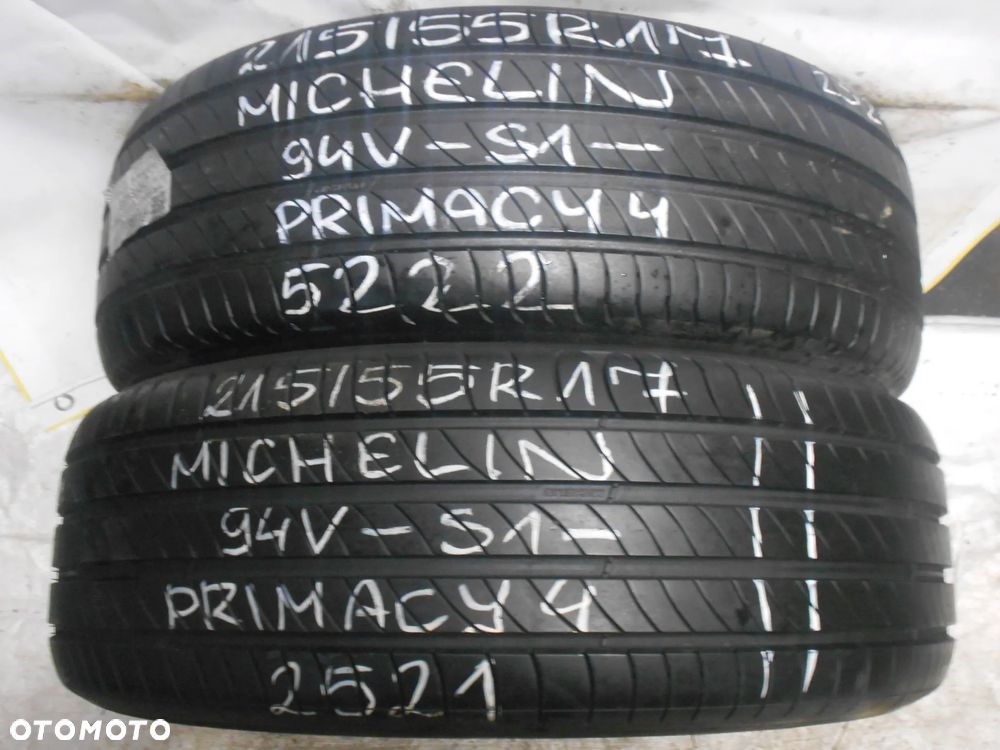 215/55R17
MICHELIN
94V-S1-
PRIMACY 4
5222
215/55R17
MICHELIN
94V-S1-
PRIMACY 4
2521
OTOMOTO